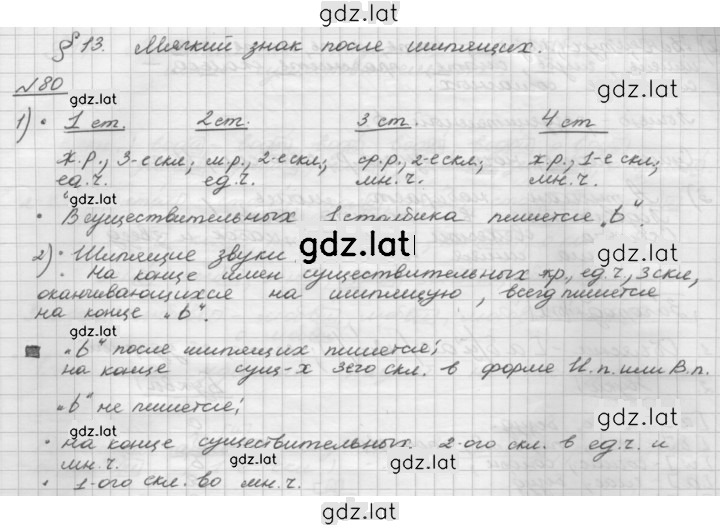 gdz.lat
§ 13. Мягкий знак после шипящих.
№80
gdz.lat
1) • 1 ст. 2 ст. 3 ст. 4 ст.
gdz.lat gdz.lat
ж.р., 3-е скл; м.р., 2-е скл; ср.р., 2-е скл; ж.р., 1-е скл;
ед.ч. ед.ч. мн.ч. мн.ч.
gdz.lat gdz.lat
• В существительных 1 столбика пишется "ь".
gdz.lat
2) • Шипящие звуки
• На конце имен существительных ж.р., ед.ч., 3 скл,
оканчивающихся на шипящую, всегд пишется
на конце „ь".
gdz.lat
„ь" после шипящих пишется;
на конце сущ-х 3его скл. в форме И.п. или В.п.
gdz.lat
„ь" не пишется;
gdz.lat
• на конце существительных 2-ого скл. в ед.ч. и
мн.ч.
gdz.lat gdz.lat
• 1-ого скл. во мн.ч.
gdz.lat
gdz.lat